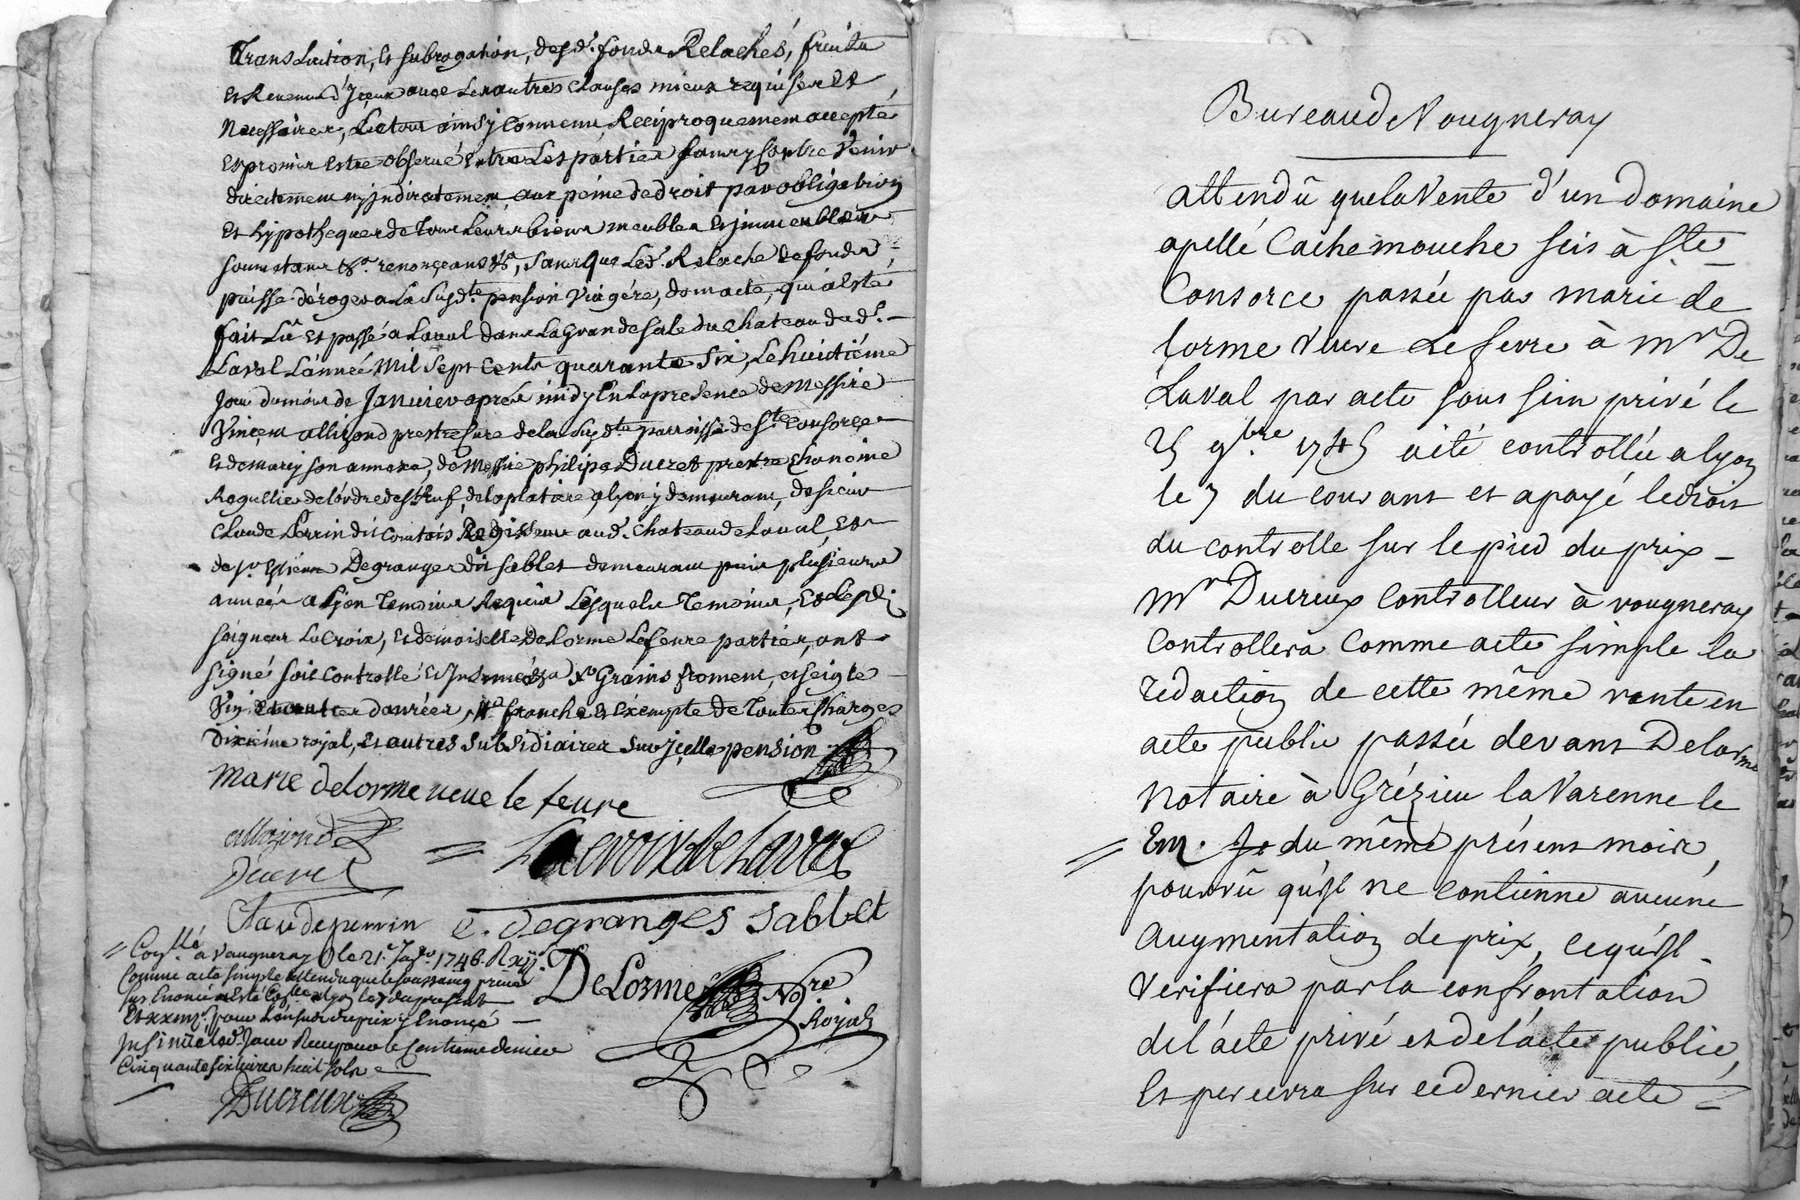 Translation, et subrogation, desd. fonds Relachés, fruits
et Revenus d'Iceux avec les autres clauses mieux requises et
Necessaires, Le tout ainsy convenu, Reciproquement accepté
et promis estre observé entre Les parties sans y contrevenir
directement ny indirectement, aux peine de droit par obligation
et hypotheques de Tous Leurs biens meubles et immeubles
soumetans &a. renonçeans &a, sans que Led. Relache de fonds
puisse déroger a La susd.te pension viagére, dont acte, qui a esté
fait Lû et passé a Laval dans La grande sale du chateau dud.
Laval L'année Mil sept cents quarante six, Le huitiéme
Jour du mois de Janvier apres midy En La presence de Messire
Vincent allizond prestre curé de la susd.te parroisse de Ste Consorce
et de marcy son annexe, de Messire philipe Ducret prestre chanoine
Regullier de l'ordre de St Ruf, de la platiere, a lyon y demeurant, de sieur
Claude Perrin dit Comtois Regisseur aud. chateau de Laval, et
de sr Estienne Degranges dit sablet demeurant puis plusieurs
années a lyon Temoins Requis Lesquels Temoins, et Lesd.
seigneur Lacroix, et demoiselle Delorme Lefevre parties, ont
signé soit controllé et Insinué Grains froment, et seigle
Vin et autres danrées, franche et éxempte de toutes Charges
Dixiéme royal, et autres subsidiaires sur jcelle pension
marie delorme veuve le fevre
allizond
= Lacroix de Laval
Ducret
Claude perrin E. Degranges sablet
= Con.llé a Vaugneray le 21.e Ja.er 1746. R xij s.
Comme acte simple attendu que le sousseing privé
sus Enoncé a Esté Con.llé a lyon le 7 du present
DeLorme No.re Royal
pour L'ensuite du prix y Enoncé
Insinué led. Jour Reçu pour le Centieme denier
Cinquante six livres huit sols
Ducreux
Bureau de Vougneray
attendû que la Vente d'un domaine
apellé Cachemouche scis à Ste
Consorce passée par marie de
lorme Veuve Lefevre à Mr De
Laval par acte sous sein privé le
25 9bre 1745 a été controllée a lyon
le 7 du courant et a payé le droit
du controlle sur le pied du prix –
Mr Ducreux Controlleur à vougneray
Controllera Comme acte simple la
rédaction de cette même vente en
acte public passée devant Delorme
Notaire à Grézieu la Varenne le
= du même présent mois,
pourvû qu'il ne contienne aucune
augmentation de prix, ce qu'il
verifiera par la confrontation
de l'acte privé et de l'acte public,
Et percevra sur ce dernier acte =